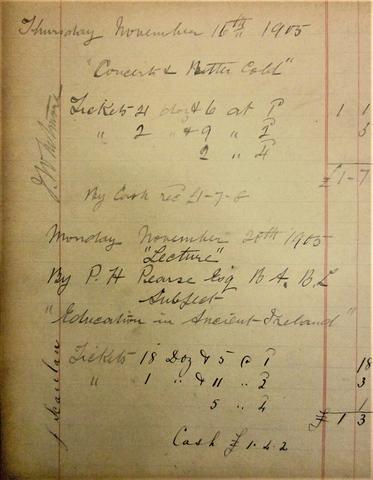 Thursday November 16th 1905
"Concert & Bitter Cold"
Tickets 4 doz & 6 at 1 1
" 2 " & 9 " 2 3
2 " 4
£ 1-7
By Cash rec £1-7-8
Monday November 20th 1905
"Lecture"
By P. H Pearse Esq B A. B L
Subject
"Education in Ancient Ireland"
Tickets 18 Doz & 5 @ 1 18
" 1 " & 11 " 2 3
5 " 4 1
£ 1 3
Cash £ 1.4.2